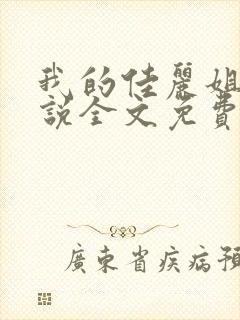 我的佳麗姐
說全文免費
廣東省疾病預